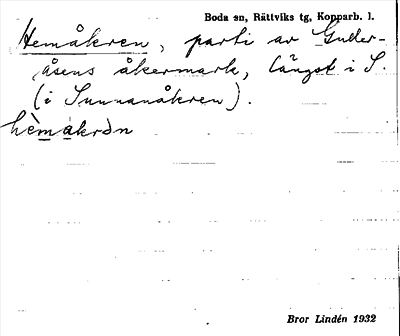 Boda sn, Rättviks tg, Kopparb. l.
Hemåkren, parti av Guller-
åsens åkermark, längst i S.
(i Sunnanåkren).
hèmåkrən
Bror Lindén 1932